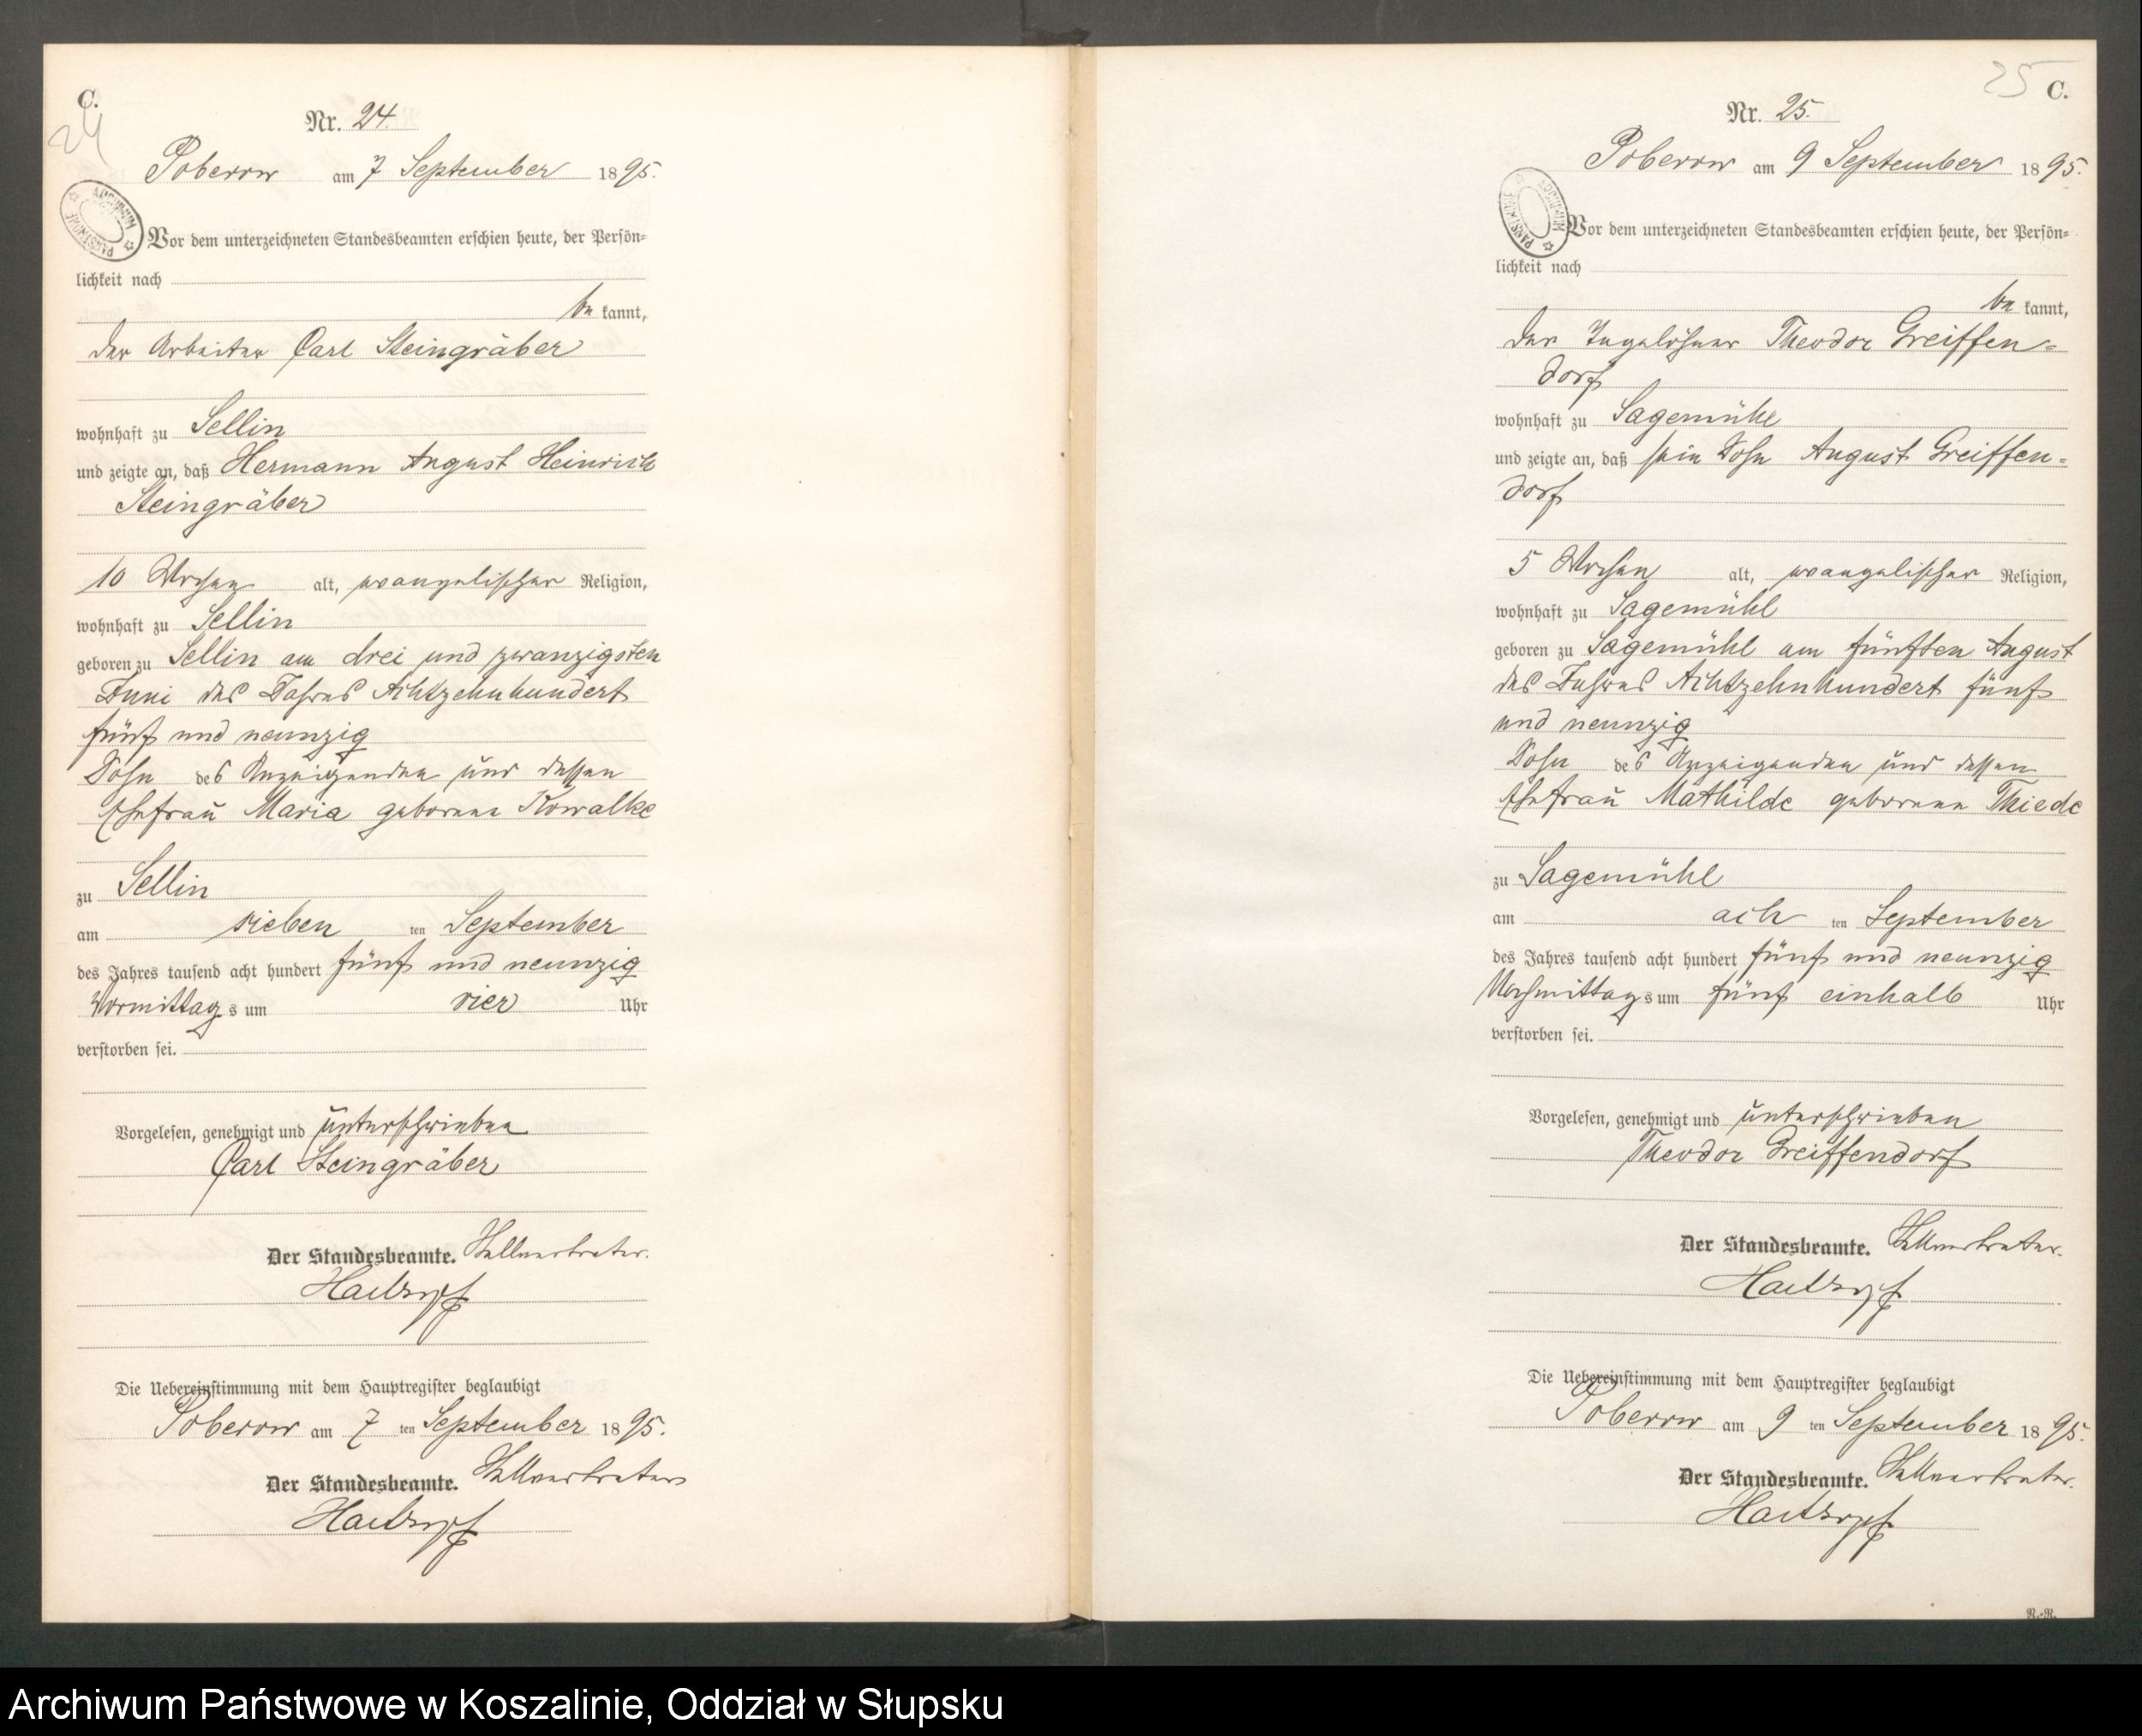 C.
24
Nr. 24.
Poberow am 7 September 1895.
ARCHIWUM PAŃSTWOWE
Vor dem unterzeichneten Standesbeamten erschien heute, der Persön=
lichkeit nach
be kannt,
der Arbeiter Carl Steingräber
wohnhaft zu Sellin
und zeigte an, daß Hermann August Heinrich
Steingräber
10 Wochen alt, evangelischer Religion,
wohnhaft zu Sellin
geboren zu Sellin am drei und zwanzigsten
Juni des Jahres Achtzehnhundert
fünf und neunzig
Sohn des Anzeigenden und dessen
Ehefrau Maria geborene Kowalke
zu Sellin
am sieben ten September
des Jahres tausend acht hundert fünf und neunzig
Vormittags um vier Uhr
verstorben sei.
Vorgelesen, genehmigt und unterschrieben
Carl Steingräber
Der Standesbeamte. Stellvertreter.
Die Uebereinstimmung mit dem Hauptregister beglaubigt
Poberow am 7 ten September 1895.
Der Standesbeamte. Stellvertreter
25 C.
Nr. 25.
Poberow am 9 September 1895.
ARCHIWUM PAŃSTWOWE
Vor dem unterzeichneten Standesbeamten erschien heute, der Persön=
lichkeit nach
be kannt,
der Tagelöhner Theodor Greiffen=
dorf
wohnhaft zu Sagemühl
und zeigte an, daß sein Sohn August Greiffen=
dorf
5 Wochen alt, evangelischer Religion,
wohnhaft zu Sagemühl
geboren zu Sagemühl am fünften August
des Jahres Achtzehnhundert fünf
und neunzig
Sohn des Anzeigenden und dessen
Ehefrau Mathilde geborene Thiede
zu Sagemühl
am ach ten September
des Jahres tausend acht hundert fünf und neunzig
Nachmittags um fünf einhalb Uhr
verstorben sei.
Vorgelesen, genehmigt und unterschrieben
Theodor Greiffendorf
Der Standesbeamte. Stellvertreter.
Die Uebereinstimmung mit dem Hauptregister beglaubigt
Poberow am 9 ten September 1895.
Der Standesbeamte. Stellvertreter.
R.-R.
Archiwum Państwowe w Koszalinie, Oddział w Słupsku